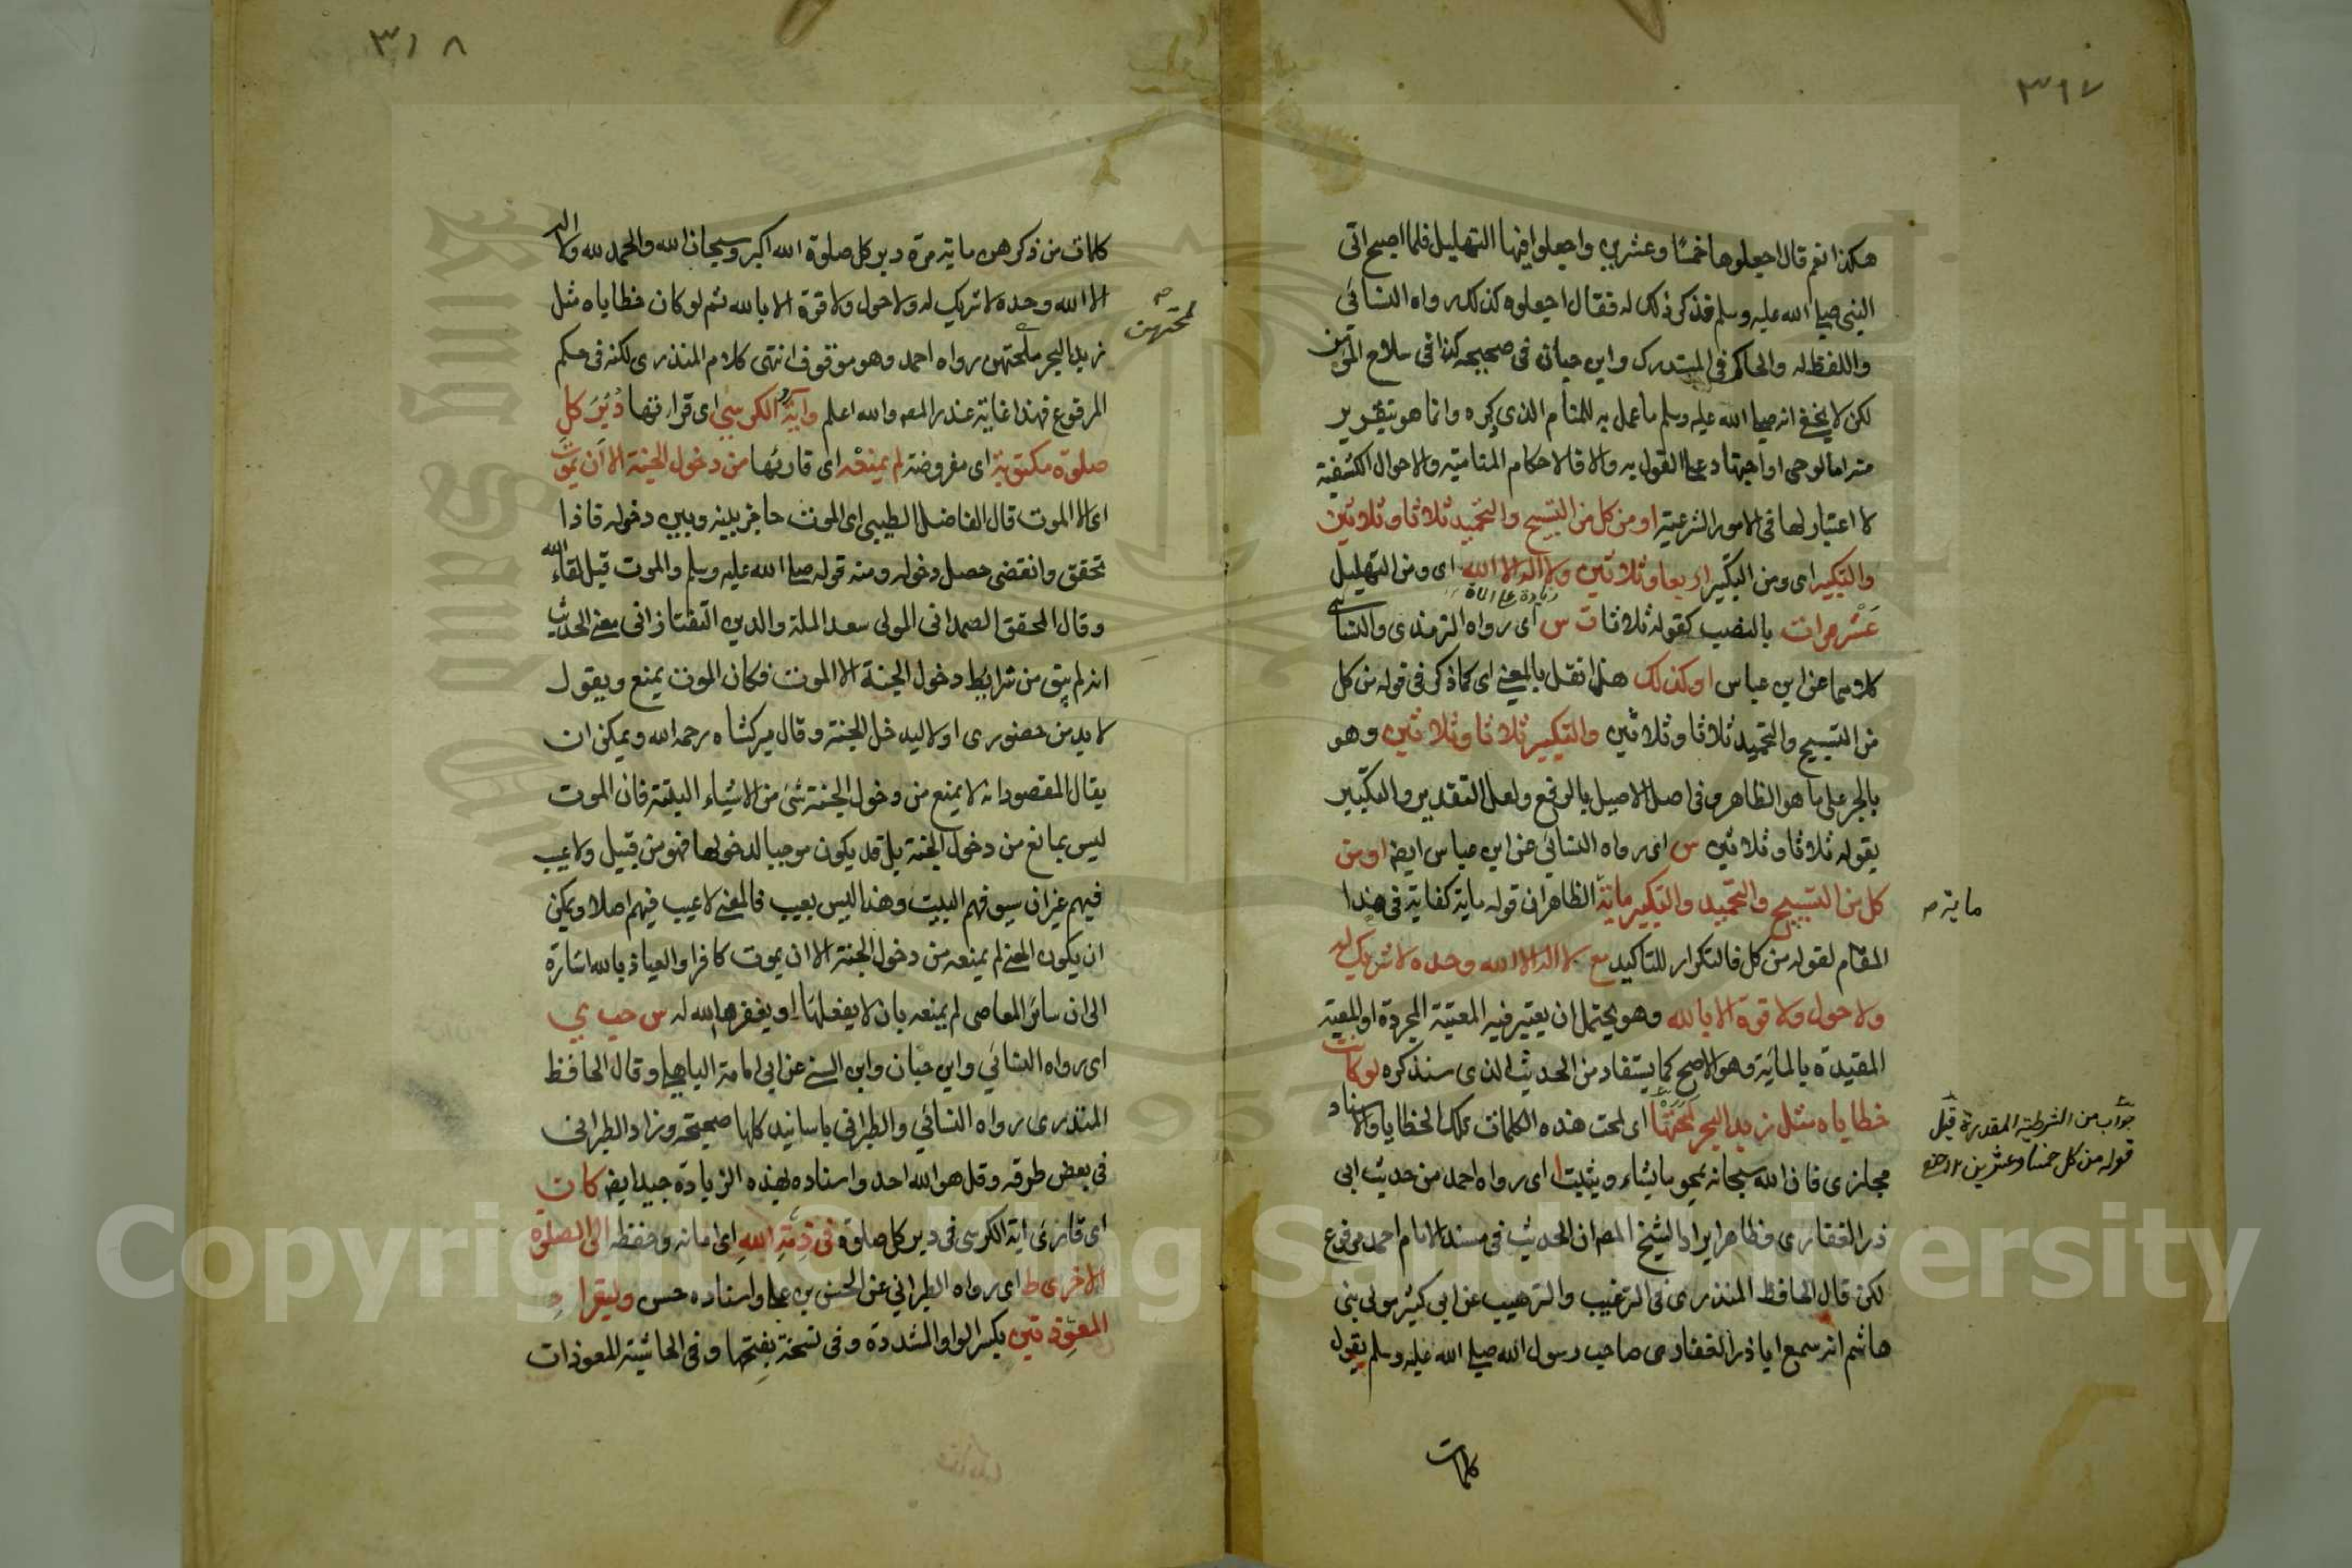 ٣١٧
هكذا نعم قال اجعلوها خمسًا وعشرين واجعلوا فيها التهليل فلما اصبح اتى
النبي صلى الله عليه وسلم فذكر ذلك له فقال اجعلوه كذلك رواه النسائي
واللفظ له والحاكم في المستدرك وابن حبان في صحيحه كذا في سلاح المؤمن
لكن لا يخفى انه صلى الله عليه وسلم ما عمل به للمنام الذي ذكره وانما هو بتقرير
منه اما لوحي او اجتهاد على القول به والا فالاحكام المنامية والاحوال الكشفية
لا اعتبار لها في الامور الشرعية او من كل من التسبيح والتحميد ثلاثا وثلاثين
والتكبير اى ومن التكبير اربعا وثلاثين ولا اله الا الله اى ومن التهليل
زيادة على المائة
عَشْر مرات بالنصب كقوله ثلاثا ت س اى رواه الترمذى والنسائى
كلاهما عن ابن عباس او كذلك هذا نقل بالمعنى اى كما ذكر في قوله من كل
من التسبيح والتحميد ثلاثا وثلاثين والتكبير ثلاثا وثلاثين وهو
بالجر على ما هو الظاهر وفي اصل الاصيل بالرفع ولعل التقدير والتكبير
يقوله ثلاثا وثلاثين س اى رواه النسائي عن ابن عباس ايضا او من
كل من التسبيح والتحميد والتكبير مائة الظاهر ان قوله ماية كفاية في هذا
ماية صح
المقام لقوله من كل فالتكرار للتاكيد مع لا اله الا الله وحده لا شريك له
ولا حول ولا قوة الا بالله وهو يحتمل ان يعتبر فيه المعية المجردة او المعية
المقيدة بالمائية وهو الاصح كما يستفاد من الحديث الذى سنذكره لو كانت
خطاياه مثل زبد البحر لمحتها اى لمحت هذه الكلمات تلك الخطايا والاسناد
جواب من الشرطية المقدرة قبل
قوله من كل خمسا وعشرين
مجازى فان الله سبحانه يمحو ما يشاء ويثبت ا اى رواه احمد من حديث ابى
ذر الغفارى وظاهر ايراد الشيخ المصـ ان الحديث في مسند الامام احمد مرفوع
لكن قال الحافظ المنذرى في الترغيب والترهيب عن ابي كثير مولى بنى
هاشم انه سمع ابا ذر الغفارى صاحب رسول الله صلى الله عليه وسلم يقول
كلمات
٣١٨
كلمات من ذكرهن ماية مرة دبر كل صلوة الله اكبر وسبحان الله والحمد لله ولا اله
الا الله وحده لا شريك له ولا حول ولا قوة الا بالله ثم لو كان خطاياه مثل
زبد البحر لمحتهن رواه احمد وهو موقوف انتهى كلام المنذرى لكنه في حكم
لمحتهن صح
المرفوع فهذا غاية عذر المصـ والله اعلم وآية الكرسي اى قراءتها دُبُرَ كلِ
صلوة مكتوبة اى مفروضة لم يمنعه اى قاريها من دخول الجنة الا اَن يموت
اى الا الموت قال الفاضل الطيبي اى الموت حاجز بينه وبين دخوله فاذا
تحقق وانقضى حصل دخوله ومنه قوله صلى الله عليه وسلم والموت قبل لقاء الله
وقال المحقق الصمدانى المولى سعد الملة والدين التفتازانى معنى الحديث
انه لم يبق من شرايط دخول الجنة الا الموت فكان الموت يمنع ويقول
لا بد من حضورى اولا ليدخل الجنة وقال ميركشاه رحمه الله ويمكن ان
يقال المقصود انه لا يمنع من دخول الجنة شئ من الاشياء البتة فان الموت
ليس بمانع من دخول الجنة بل قد يكون موجبا لدخولها فهو من قبيل ولا عيب
فيهم غير ان سيوفهم البيت وهذا ليس بعيب فالمعنى لا عيب فيهم اصلا ويمكن
ان يكون المعنى لم يمنعه من دخول الجنة الا ان يموت كافرا والعياذ بالله اشارة
الى ان سائر المعاصى لم يمنعه بان لا يفعلها او يغفرها الله له س حب ى
اى رواه النسائي وابن حبان وابن السنى عن ابى امامة الباهلى وقال الحافظ
المنذرى رواه النسائي والطبرانى باسانيد كلها صحيحة وزاد الطبرانى
فى بعض طرقه وقل هو الله احد واسناده بهذه الزيادة جيد ايضا كان
اى قارئ آية الكرسى فى دبر كل صلوة فى ذِمَّةِ اللهِ اى امانه وحفظه الى الصلوة
الاخرى ط اى رواه الطبرانى عن الحسن بن على واسناده حسن وليقرا د
المعوِّذتين بكسر الواو المشددة وفى نسخة بفتحها وفى الحاشية للمعوذات
Copyright © King Saud University
King Saud University
1957